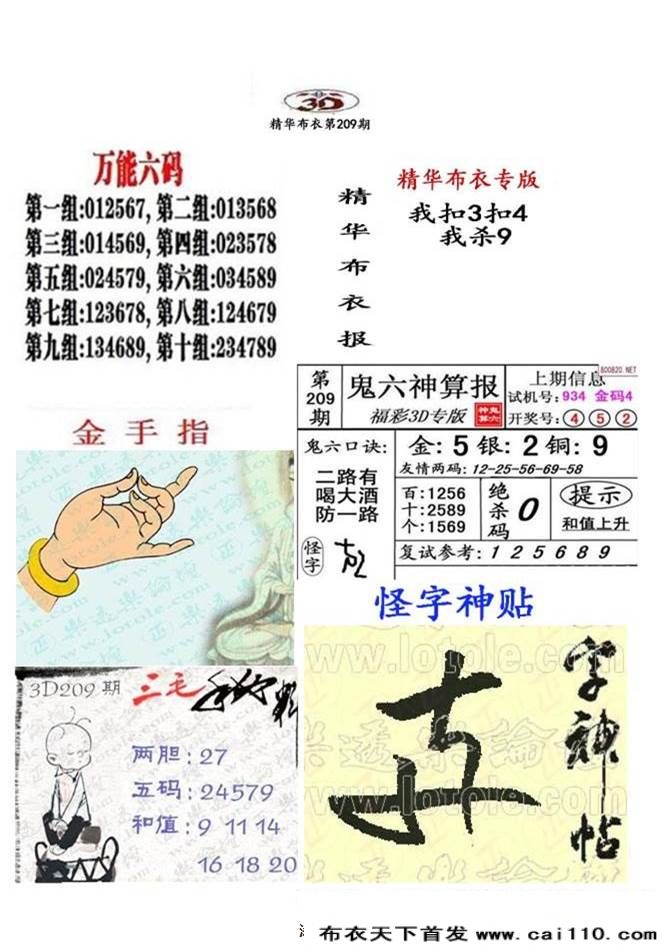 3D
精华布衣第209期
万能六码
第一组:012567,第二组:013568
第三组:014569,第四组:023578
第五组:024579,第六组:034589
第七组:123678,第八组:124679
第九组:134689,第十组:234789
精华布衣报
精华布衣专版
我扣3扣4
我杀9
金手指
www.lotole.com
800820.NET
第209期
鬼六神算报
福彩3D专版
神鬼算六
上期信息
试机号:934 金码4
开奖号:④⑤②
鬼六口诀:
二路有
喝大酒
防一路
怪字
金:5 银:2 铜:9
友情两码:12-25-56-69-58
百:1256
十:2589
个:1569
绝杀码
0
提示
和值上升
复试参考:125689
怪字神贴
www.lotole.com
字神帖
3D209期
三毛
两胆:27
五码:24579
和值:9 11 14
16 18 20
布衣天下首发 www.cai110.com